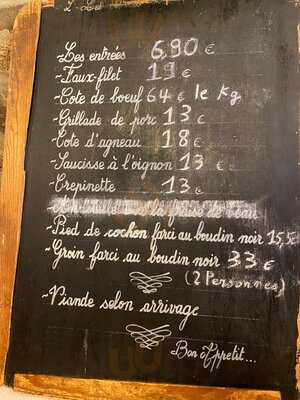 -Les entrées 6.90 €
-Faux-filet 19 €
-Cote de boeuf 64 € le Kg
-Grillade de porc 13 €
-Cote d'agneau 18 €
-Saucisse à l'oignon 13 €
-Crepinette 13 €
-Pied de cochon farci au boudin noir 15,5
-Groin farci au boudin noir 33 €
(2 Personnes)
-Viande selon arrivage
Bon Appetit...